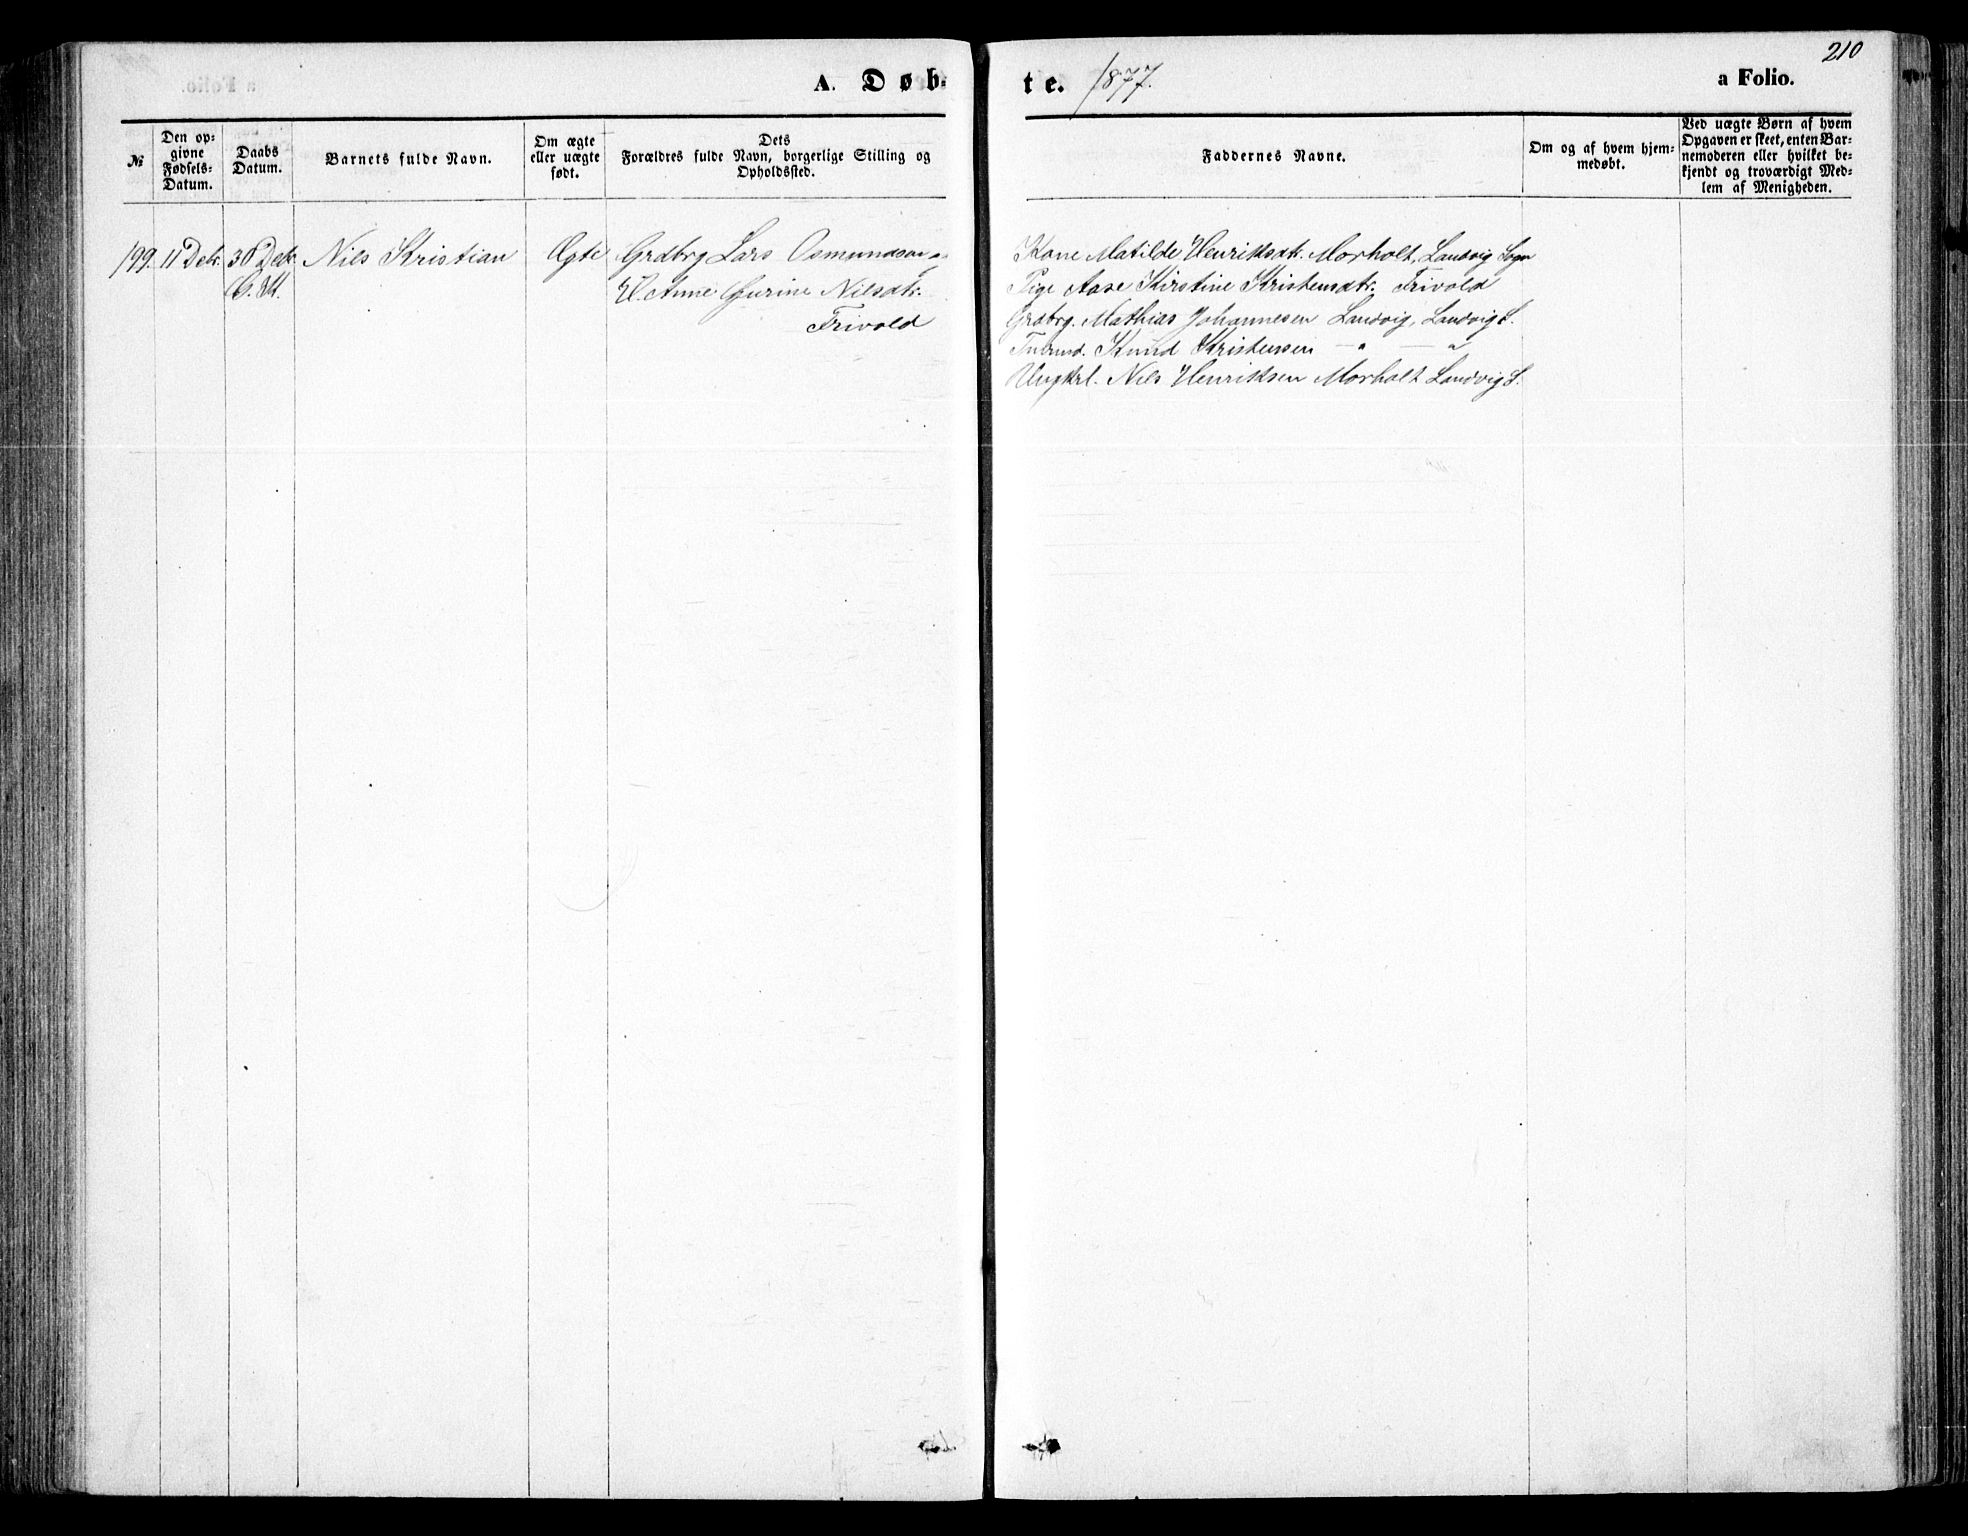 210
A. Døb-
te. 1877.
a Folio.
№
Den op-
givne
Fødsels-
Datum.
Daabs
Datum.
Barnets fulde Navn.
Om ægte
eller uægte
født.
Dets
Forældres fulde Navn, borgerlige Stilling og
Opholdssted.
Faddernes Navne.
Om og af hvem hjem-
medøbt.
Ved uægte Børn af hvem
Opgaven er skeet, enten Bar-
nemoderen eller hvilket be-
kjendt og troværdigt Med-
lem af Menigheden.
199. 11 Dek. 30 Dek. Nils Kristian Ægte Grdbrg Lars Osmundsen
H. Anne Gurine Nilsdtr.
Frivold
Kone Matilde Henriksdtr. Morholt, Landvig Sogn
Pige Aase Kirstine Kristensdtr. Frivold
Grdbrg. Mathias Johannesen Landvig, Landvig S.
Knud Kristensen — " — "
Ungkrl. Nils Henriksen Morholt Landvig S.